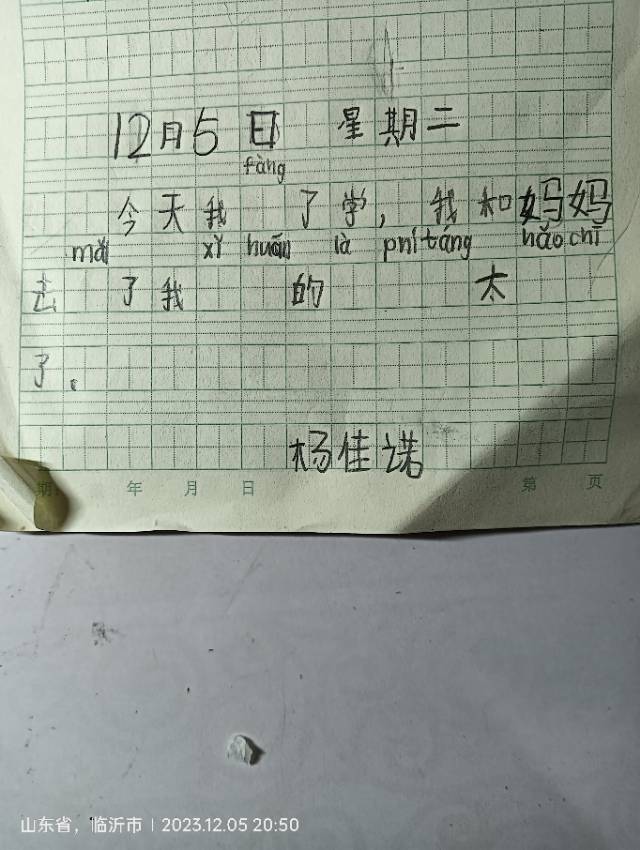 12月5日 星期二
fàng
今天我 了学，我和妈妈
mǎi xǐ huān là pní táng hǎo chī
去 了我 的 太
了。
杨佳诺
期. 年 月 日 第 页
山东省，临沂市 | 2023.12.05 20:50